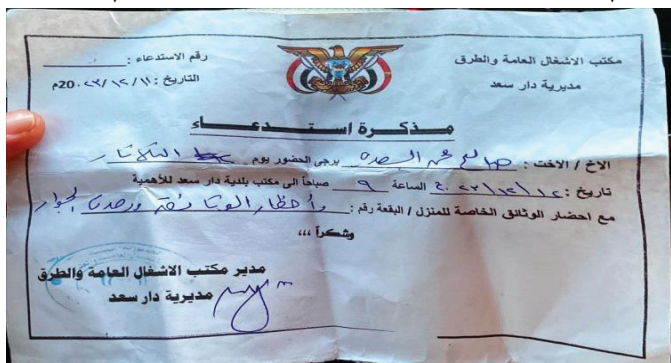 مكتب الاشغال العامة والطرق
مديرية دار سعد
رقم الاستدعاء :
التاريخ : ١١/ ١٢/ ٢٣.20م
مـذكـرة اسـتـدعـاء
الاخ / الاخت : صالح محمد يرجى الحضور يوم الثلاثاء
تاريخ : ١٢/١٢/ ٢٣ الساعة ٩ صباحاً الى مكتب بلدية دار سعد للأهمية
مع احضار الوثائق الخاصة للمنزل / البقعة رقم : الجوار
وشكراً ،،،
مدير مكتب الاشغال العامة والطرق
مديرية دار سعد